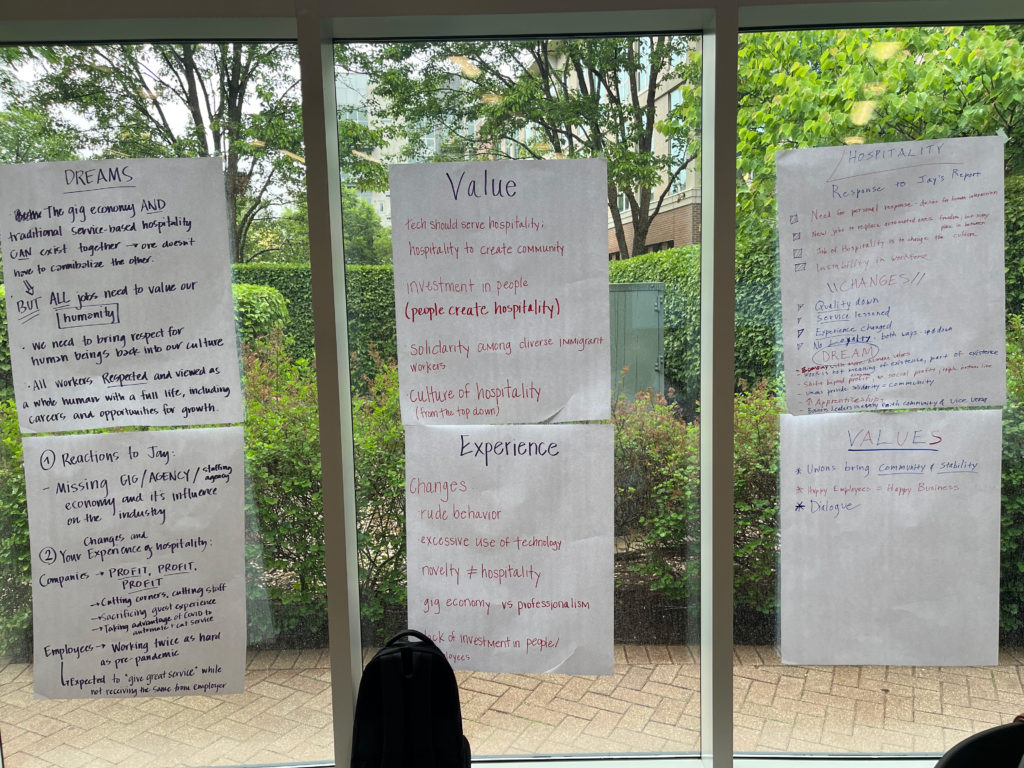 DREAMS
The gig economy AND
traditional service-based hospitality
CAN exist together → one doesn't
have to cannibalize the other.
BUT ALL jobs need to value our
humanity
• We need to bring respect for
human beings back into our culture
• All workers Respected and viewed as
a whole human with a full life, including
careers and opportunities for growth.
① Reactions to Jay:
- Missing GIG/AGENCY/staffing agency
economy and its influence
on the industry
Changes and
② Your Experience of hospitality:
Companies → PROFIT, PROFIT,
PROFIT
→ Cutting corners, cutting staff
→ Sacrificing guest experience
→ Taking advantage of COVID to
automate + cut service
Employees → Working twice as hard
as pre-pandemic
→ Expected to "give great service" while
not receiving the same from employer
Value
tech should serve hospitality.
hospitality to create community
investment in people
(people create hospitality)
solidarity among diverse immigrant
workers
culture of hospitality
(from the top down)
Experience
Changes
rude behavior
excessive use of technology
novelty ≠ hospitality
gig economy vs professionalism
lack of investment in people/
HOSPITALITY
Response to Jay's Report
Need for personal response - desire for human interaction
New jobs to replace automated ones
Job of Hospitality is to change the culture
Instability in workforce
\\CHANGES//
Quality down
Service lessened
Experience changed
No Loyalty both ways up & down
DREAM
work is not meaning of existence, part of existence
- Unions provide solidarity + community
- ↑ Apprenticeships
VALUES
* Unions bring Community & Stability
* Happy Employees = Happy Business
* Dialogue